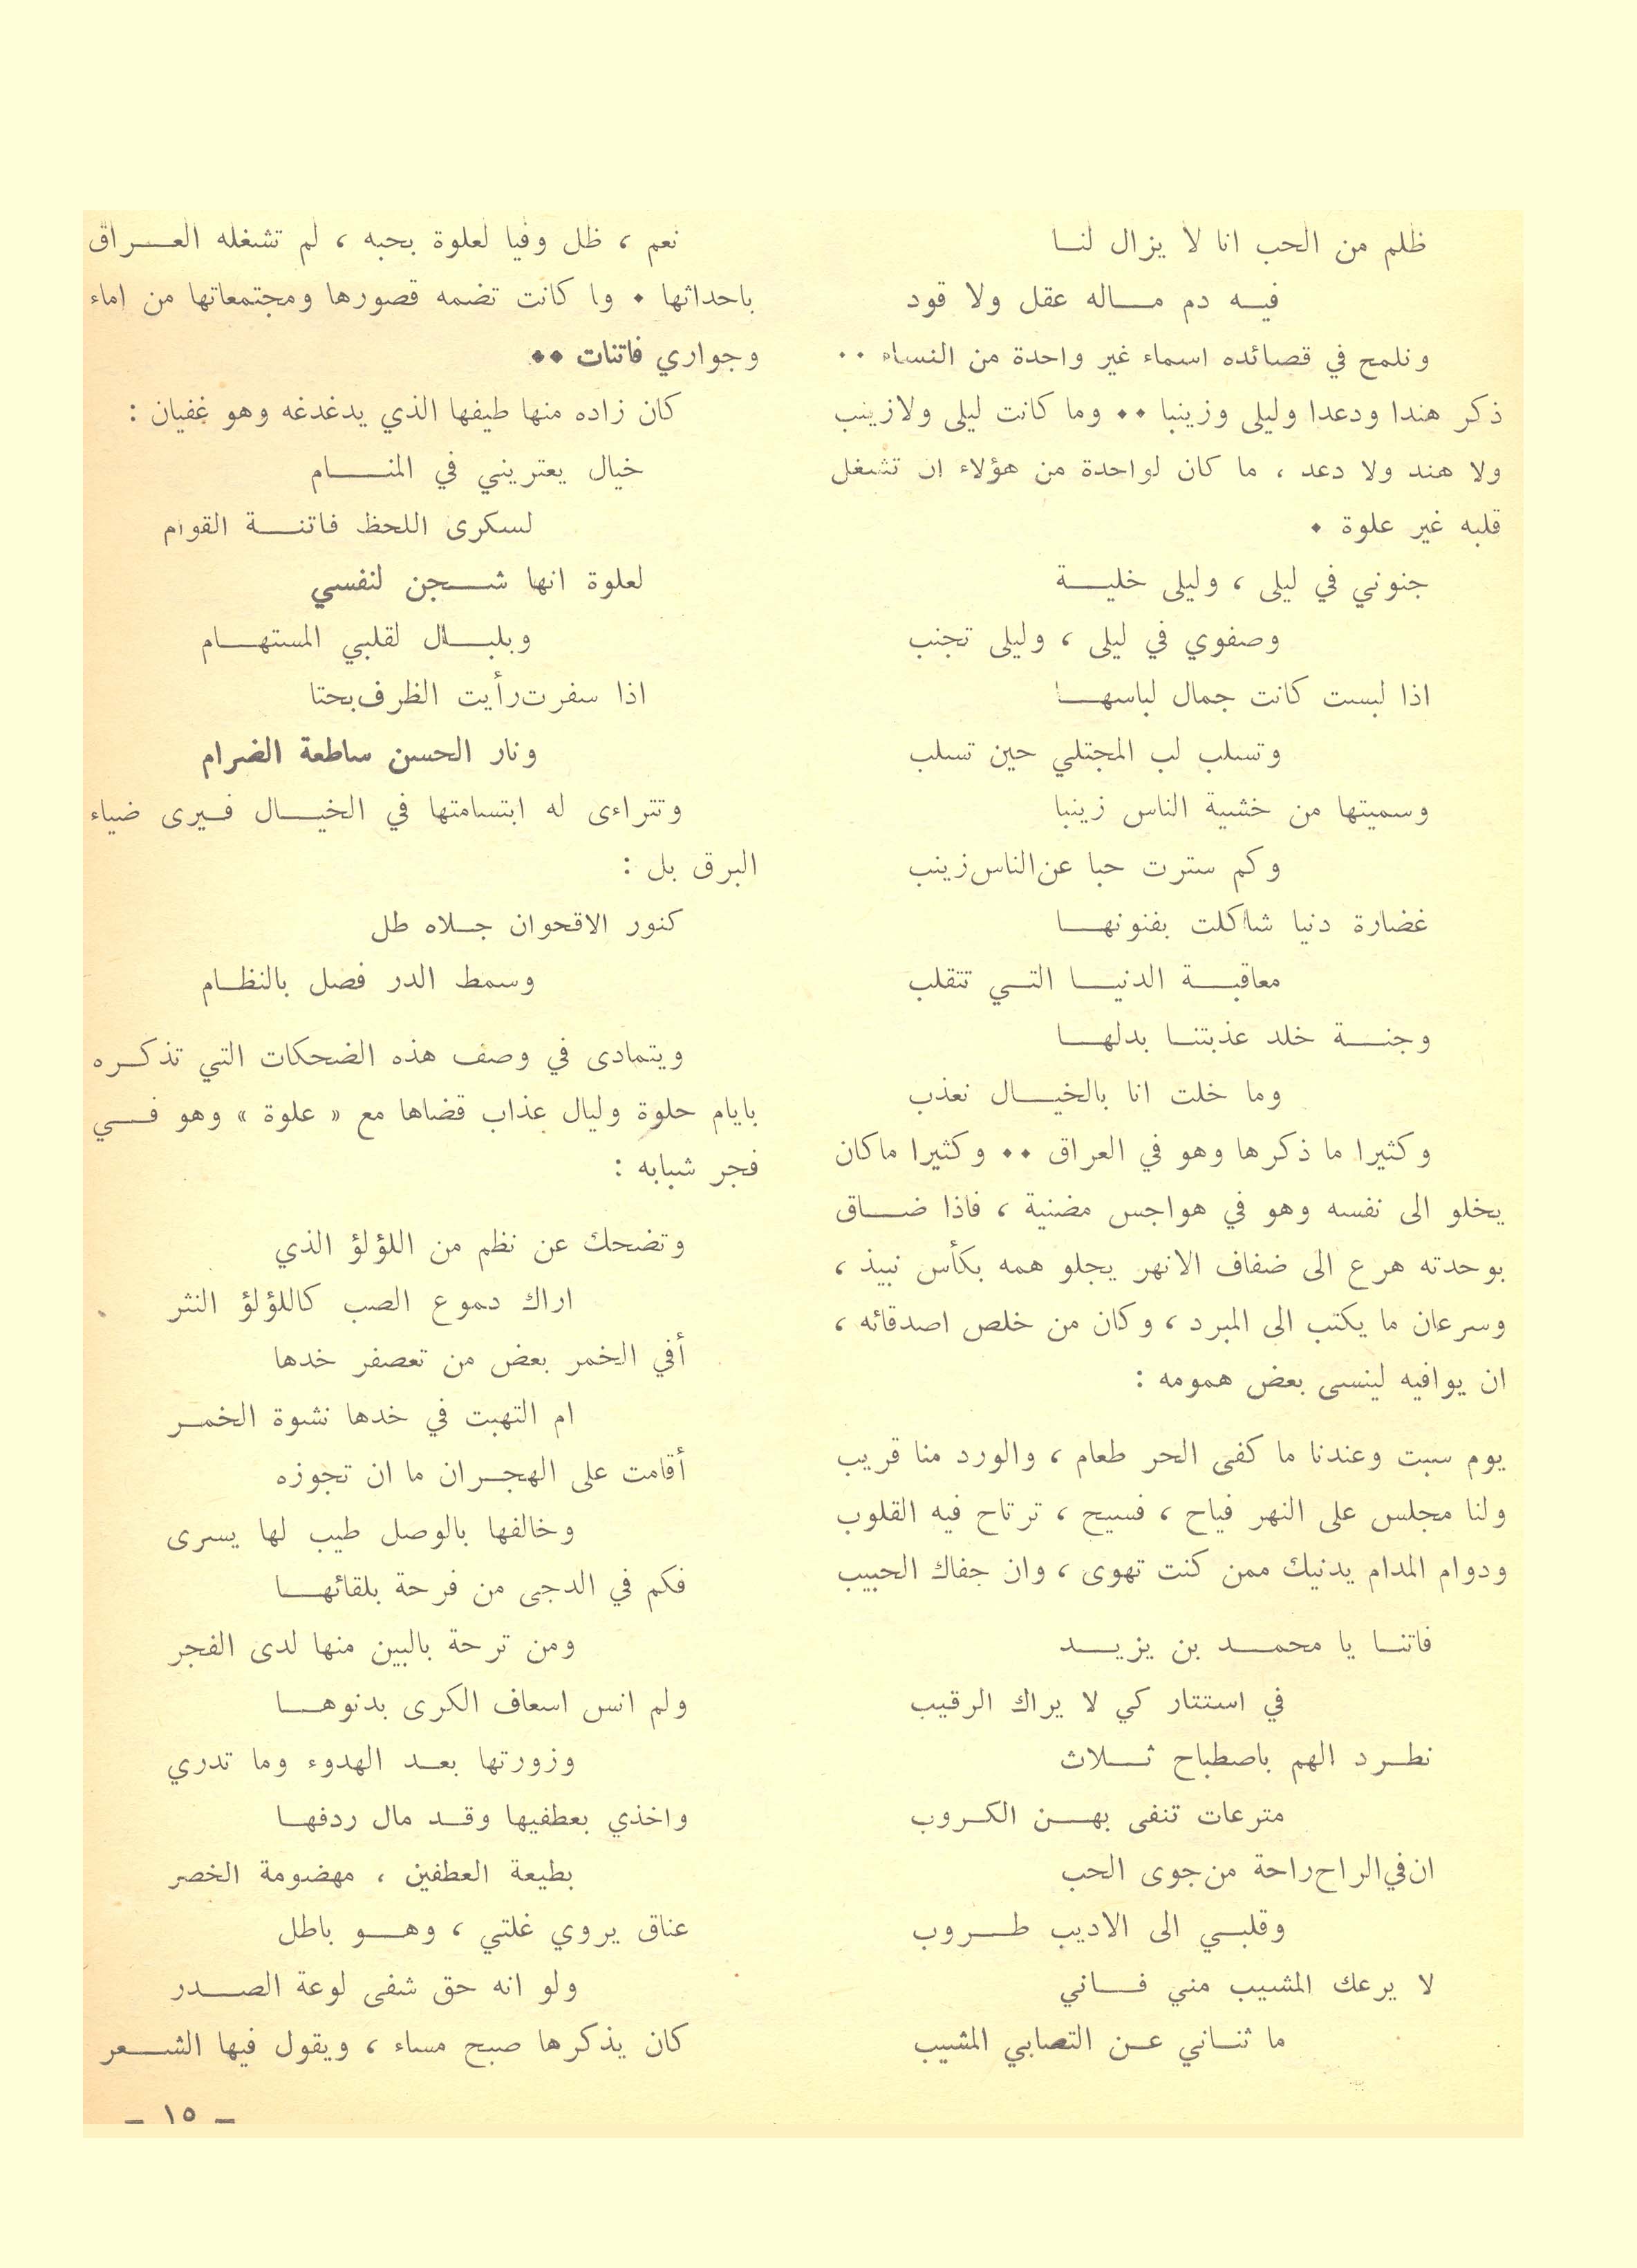 ظلم من الحب انا لا يزال لنا
فيه دم ماله عقل ولا قود
ونلمح في قصائده اسماء غير واحدة من النساء ٠٠
ذكر هندا ودعدا وليلى وزينبا ٠٠ وما كانت ليلى ولازينب
ولا هند ولا دعد ، ما كان لواحدة من هؤلاء ان تشغل
قلبه غير علوة ٠
جنوني في ليلى ، وليلى خلية
وصفوي في ليلى ، وليلى تجنب
اذا لبست كانت جمال لباسها
وتسلب لب المجتلي حين تسلب
وسميتها من خشية الناس زينبا
وكم سترت حبا عن الناس زينب
غضارة دنيا شاكلت بفنونها
معاقبة الدنيا التي تتقلب
وجنة خلد عذبتنا بدلها
وما خلت انا بالخيال نعذب
وكثيرا ما ذكرها وهو في العراق ٠٠ وكثيرا ماكان
يخلو الى نفسه وهو في هواجس مضنية ، فاذا ضاق
بوحدته هرع الى ضفاف الانهر يجلو همه بكأس نبيذ ،
وسرعان ما يكتب الى المبرد ، وكان من خلص اصدقائه ،
ان يوافيه لينسى بعض همومه :
يوم سبت وعندنا ما كفى الحر طعام ، والورد منا قريب
ولنا مجلس على النهر فياح ، فسيح ، ترتاح فيه القلوب
ودوام المدام يدنيك ممن كنت تهوى ، وان جفاك الحبيب
فاتنا يا محمد بن يزيد
في استتار كي لا يراك الرقيب
نطرد الهم باصطباح ثلاث
مترعات تنفى بهن الكروب
ان في الراح راحة من جوى الحب
وقلبي الى الاديب طروب
لا يرعك المشيب مني فاني
ما ثناني عن التصابي المشيب
نعم ، ظل وفيا لعلوة بحبه ، لم تشغله العراق
باحداثها ٠ وا كانت تضمه قصورها ومجتمعاتها من اماء
وجواري فاتنات ٠٠
كان زاده منها طيفها الذي يدغدغه وهو غفيان :
خيال يعتريني في المنام
لسكرى اللحظ فاتنة القوام
لعلوة انها شجن لنفسي
وبلبال لقلبي المستهام
اذا سفرت رأيت الظرف بحتا
ونار الحسن ساطعة الضرام
وتتراءى له ابتسامتها في الخيال فيرى ضياء
البرق بل :
كنور الاقحوان جلاه طل
وسمط الدر فصل بالنظام
ويتمادى في وصف هذه الضحكات التي تذكره
بايام حلوة وليال عذاب قضاها مع « علوة » وهو في
فجر شبابه :
وتضحك عن نظم من اللؤلؤ الذي
اراك دموع الصب كاللؤلؤ النثر
أفي الخمر بعض من تعصفر خدها
ام التهبت في خدها نشوة الخمر
أقامت على الهجران ما ان تجوزه
وخالفها بالوصل طيب لها يسرى
فكم في الدجى من فرحة بلقائها
ومن ترحة بالبين منها لدى الفجر
ولم انس اسعاف الكرى بدنوها
وزورتها بعد الهدوء وما تدري
واخذي بعطفيها وقد مال ردفها
بطيعة العطفين ، مهضومة الخصر
عناق يروي غلتي ، وهو باطل
ولو انه حق شفى لوعة الصدر
كان يذكرها صبح مساء ، ويقول فيها الشعر
– ١٥ –